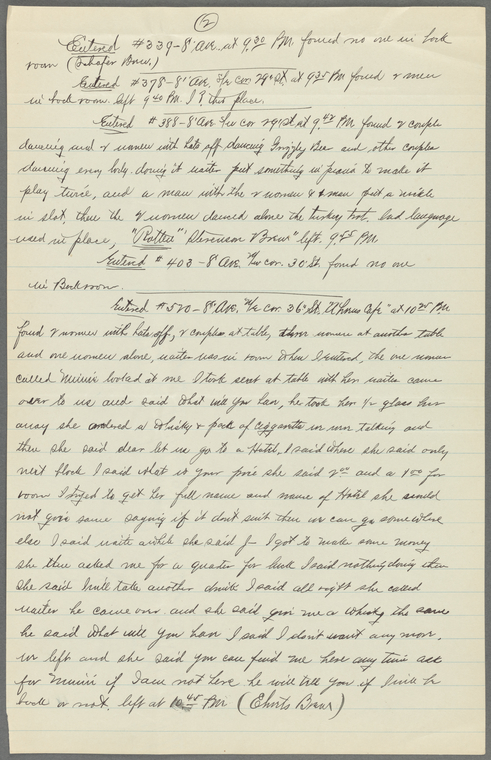 (2)
Entered #339-8' Ave. at 9.30 P.M. found no one in back
room (Schafer Brew.)
Entered #378-8' Ave. S/E cor 29th St. at 9.35 PM found 2 men
in back room left 9.40 P.M. I ? this place.
Entered #388-8' Ave S/W cor 29 St. at 9.42 P.M. found 2 couple
dancing and 2 women with hats off dancing Grizzly Bear and other couples
dancing every body doing it waiter put something in piano to make it
play twice, and a man with the 2 women & man put a nickle
in slot, then the 2 women danced alone the turkey trot. bad language
used in place, "Rotten" Stevenson Brew" left. 9.55 P.M
Entered #403-8' Ave. N/W cor. 30 St. found no one
in Backroom.
Entered #520-8th Ave. N/E cor. 36th St. Cafe" at 10.25 P.M
found 2 women with hats off, 2 couples at table, women at another table
and one women alone, waiter was in room when I entered, the one women
called Minnie looked at me I took seat at table with her waiter came
over to us and said what will you have, he took her 1/2 glass beer
away she ordered a whisky & pack of ciggarets in our talking and
then she said dear let us go to a Hotel, I said where she said only
next block I said what is your price she said 2.00 and a 1.00 for
room I tryed to get her full name and name of Hotel she would
not give same saying if it dont suit then we can go somewhere
else I said waite awhile she said I got to make some money
she then asked me for a quarter for luck I said nothing doing then
she said I will take another drink I said all right she called
waiter he came over and she said give me a whisky the same
he said what will you have I said I don't want any more.
we left and she said you can find me here any time ask
for Minnie if I am not here he will tell you if I will be
back or not. left at 10.45 P.M. (Ehrets Brew)